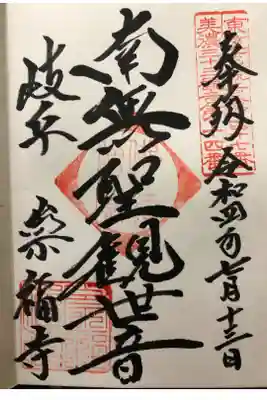 奉拝 令和四年七月十三日
南無聖観世音
岐阜 崇福寺
美濃三十三
四番